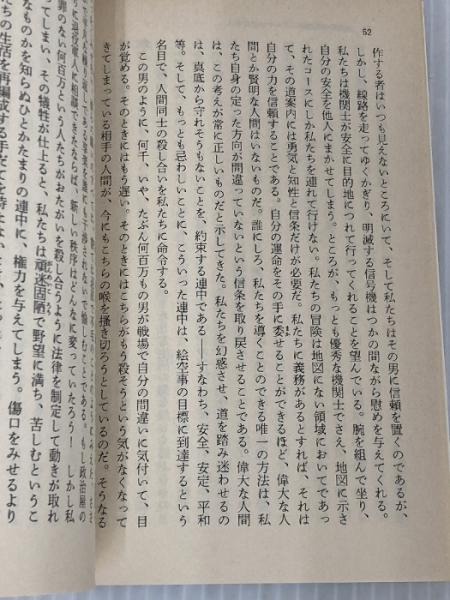 52
作する者はいつも見えないところにいて、そして私たちはその男に信頼を置くのであるが、
しかし、線路を走ってゆくかぎり、明滅する信号機はつかの間ながら慰めを与えてくれる。
私たちは機関士が安全に目的地につれて行ってくれることを望んでいる。腕を組んで坐り、
自分の安全を他人にまかせてしまう。ところが、もっとも優秀な機関士でさえ、地図に示さ
れたコースにしか私たちを連れて行けない。私たちの冒険は地図にない領域においてであっ
て、その道案内には勇気と知性と信条だけが必要だ。私たちに義務があるとすれば、それは
自分の力を信頼することである。自分の運命をその手に委せることができるほど、偉大な人
間とか賢明な人間はいないものだ。誰にしろ、私たちを導くことのできる唯一の方法は、私
たち自身の定った方向が間違っていないという信条を取り戻させることである。偉大な人間
は、この考えが常に正しいものだと示してきた。私たちを幻惑させ、道を踏み迷わせるの
は、真底から守れそうもないことを、約束する連中である――すなわち、安全、安定、平和
等。そして、もっとも忌わしいことに、こういった連中は、絵空事の目標に到達するという
名目で、人間同士の殺し合いを私たちに命令する。
この男のように、何千、いや、たぶん何百万もの男が戦場で自分の間違いに気付いて、目
が覚める。そのときにはもう遅い。そのときにはこちらがもう殺そうという気がなくなって
きてしまっている相手の人間が、今にもこちらの喉を掻き切ろうとしているのだ。そうなる
できたならば、新しい秩序はどんなに変っていたろう！ しかし私
罪のない何百万という人たちがおたがいを殺し合うように法律を制定して動きが取れ
ってしまい、その犠牲が仕上ると、私たちは頑迷固陋で野望に満ち、苦しむというこ
なものかを知らぬひとかたまりの連中に、権力を与えてしまう。傷口をみせるより
ちの生活を再編成する手だてを